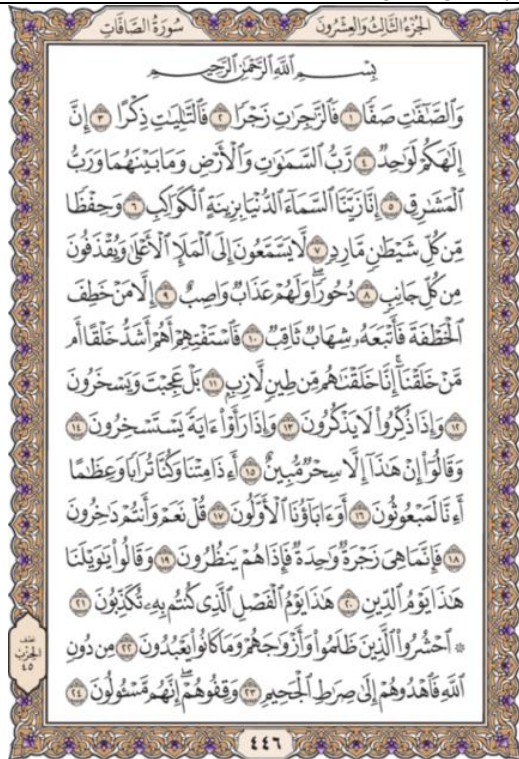 الجزء الثالث والعشرون
سورة الصافات
بِسْمِ ٱللَّهِ ٱلرَّحْمَٰنِ ٱلرَّحِيمِ
وَٱلصَّٰٓفَّٰتِ صَفّٗا ١ فَٱلزَّٰجِرَٰتِ زَجۡرٗا ٢ فَٱلتَّٰلِيَٰتِ ذِكۡرًا ٣ إِنَّ
إِلَٰهَكُمۡ لَوَٰحِدٞ ٤ رَّبُّ ٱلسَّمَٰوَٰتِ وَٱلۡأَرۡضِ وَمَا بَيۡنَهُمَا وَرَبُّ
ٱلۡمَشَٰرِقِ ٥ إِنَّا زَيَّنَّا ٱلسَّمَآءَ ٱلدُّنۡيَا بِزِينَةٍ ٱلۡكَوَاكِبِ ٦ وَحِفۡظٗا
مِّن كُلِّ شَيۡطَٰنٖ مَّارِدٖ ٧ لَّا يَسَّمَّعُونَ إِلَى ٱلۡمَلَإِ ٱلۡأَعۡلَىٰ وَيُقۡذَفُونَ
مِن كُلِّ جَانِبٖ ٨ دُحُورٗاۖ وَلَهُمۡ عَذَابٞ وَاصِبٌ ٩ إِلَّا مَنۡ خَطِفَ
ٱلۡخَطۡفَةَ فَأَتۡبَعَهُۥ شِهَابٞ ثَاقِبٞ ١٠ فَٱسۡتَفۡتِهِمۡ أَهُمۡ أَشَدُّ خَلۡقًا أَم
مَّنۡ خَلَقۡنَآۚ إِنَّا خَلَقۡنَٰهُم مِّن طِينٖ لَّازِبِۭ ١١ بَلۡ عَجِبۡتَ وَيَسۡخَرُونَ
١٢ وَإِذَا ذُكِّرُواْ لَا يَذۡكُرُونَ ١٣ وَإِذَا رَأَوۡاْ ءَايَةٗ يَسۡتَسۡخِرُونَ ١٤
وَقَالُوٓاْ إِنۡ هَٰذَآ إِلَّا سِحۡرٞ مُّبِينٌ ١٥ أَءِذَا مِتۡنَا وَكُنَّا تُرَابٗا وَعِظَٰمًا
أَءِنَّا لَمَبۡعُوثُونَ ١٦ أَوَءَابَآؤُنَا ٱلۡأَوَّلُونَ ١٧ قُلۡ نَعَمۡ وَأَنتُمۡ دَٰخِرُونَ
١٨ فَإِنَّمَا هِيَ زَجۡرَةٞ وَٰحِدَةٞ فَإِذَا هُمۡ يَنظُرُونَ ١٩ وَقَالُواْ يَٰوَيۡلَنَا
هَٰذَا يَوۡمُ ٱلدِّينِ ٢٠ هَٰذَا يَوۡمُ ٱلۡفَصۡلِ ٱلَّذِي كُنتُم بِهِۦ تُكَذِّبُونَ ٢١
۞ ٱحۡشُرُواْ ٱلَّذِينَ ظَلَمُواْ وَأَزۡوَٰجَهُمۡ وَمَا كَانُواْ يَعۡبُدُونَ ٢٢ مِن دُونِ
ٱللَّهِ فَٱهۡدُوهُمۡ إِلَىٰ صِرَٰطِ ٱلۡجَحِيمِ ٢٣ وَقِفُوهُمۡۖ إِنَّهُم مَّسۡـُٔولُونَ ٢٤
نصف
الحزب
٤٥
٤٤٦